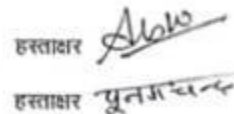 हस्ताक्षर
हस्ताक्षर पुनमचन्द